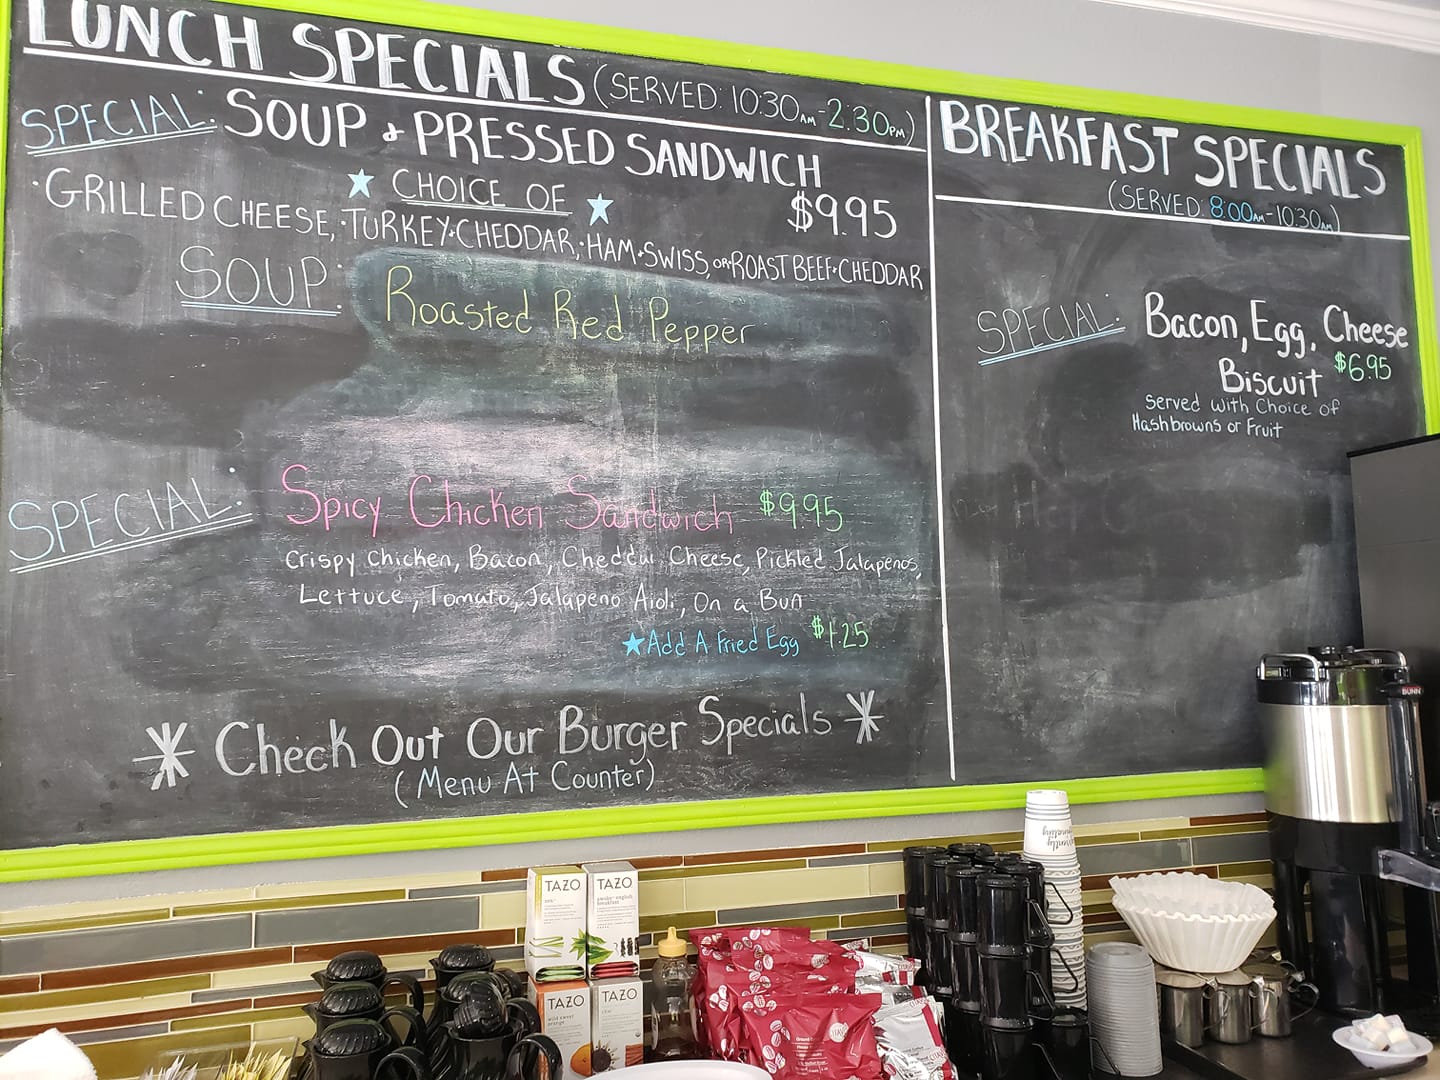 LUNCH SPECIALS (SERVED: 10:30AM-2:30PM)
SPECIAL: SOUP & PRESSED SANDWICH
$9.95
★ CHOICE OF ★
·GRILLED CHEESE, ·TURKEY·CHEDDAR, ·HAM·SWISS, OR·ROAST BEEF·CHEDDAR
SOUP: Roasted Red Pepper
SPECIAL: Spicy Chicken Sandwich $9.95
Crispy Chicken, Bacon, Cheddar Cheese, Pickled Jalapenos,
Lettuce, Tomato, Jalapeno Aioli, On a Bun
★Add A Fried Egg $1.25
Check Out Our Burger Specials
(Menu At Counter)
BREAKFAST SPECIALS
(SERVED: 8:00AM-10:30AM)
SPECIAL: Bacon, Egg, Cheese
Biscuit $6.95
Served with Choice of
Hashbrowns or Fruit
BUNN
TAZO
zen
TAZO
awake english
breakfast
TAZO
wild sweet
orange
TAZO
chai